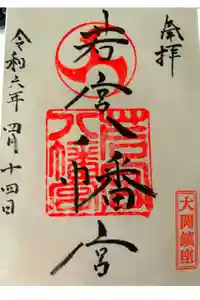 奉拝
若宮八幡宮
令和六年四月十四日
大岡鎮座